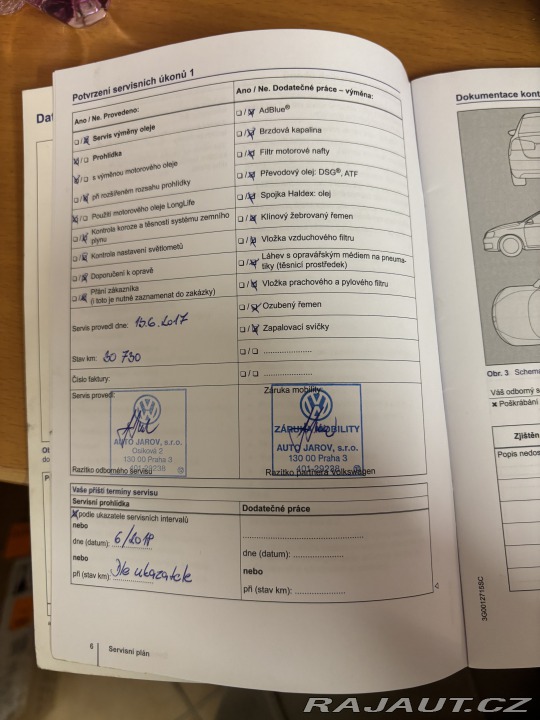 Potvrzení servisních úkonů 1
Ano / Ne. Provedeno:
❏ / ❏ Servis výměny oleje
❏ / ❏ Prohlídka
❏ / ❏ s výměnou motorového oleje
❏ / ❏ při rozšířeném rozsahu prohlídky
❏ / ❏ Použití motorového oleje LongLife
❏ / ❏ Kontrola koroze a těsnosti systému zemního
plynu
❏ / ❏ Kontrola nastavení světlometů
❏ / ❏ Doporučení k opravě
❏ / ❏ Přání zákazníka
(i toto je nutné zaznamenat do zakázky)
Servis provedl dne: 15.6.2017
Stav km: 30 730
Číslo faktury:
Servis provedl:
AUTO JAROV, s.r.o.
Osiková 2
130 00 Praha 3
401-29238
Razítko odborného servisu
Ano / Ne. Dodatečné práce – výměna:
❏ / ❏ AdBlue®
❏ / ❏ Brzdová kapalina
❏ / ❏ Filtr motorové nafty
❏ / ❏ Převodový olej: DSG®, ATF
❏ / ❏ Spojka Haldex: olej
❏ / ❏ Klínový žebrovaný řemen
❏ / ❏ Vložka vzduchového filtru
❏ / ❏ Láhev s opravářským médiem na pneuma-
tiky (těsnicí prostředek)
❏ / ❏ Vložka prachového a pylového filtru
❏ / ❏ Ozubený řemen
❏ / ❏ Zapalovací svíčky
❏ / ❏ ....................
❏ / ❏ ....................
Záruka mobility:
ZÁRUKA MOBILITY
AUTO JAROV, s.r.o.
130 00 Praha 3
401-29238
Razítko partnera Volkswagen
Vaše příští termíny servisu
Servisní prohlídka
❏ podle ukazatele servisních intervalů
nebo
dne (datum): 6/2019
nebo
při (stav km): Dle ukazatele
Dodatečné práce
dne (datum): ....................
nebo
při (stav km): ....................
6 Servisní plán
3G0012715SC
Dokumentace kont
Obr. 3 Schema
Váš odborný s
✖ Poškrábání
Zjištěn
Popis nedos
RAJAUT.CZ